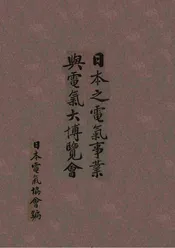 日本之電氣事業
與電氣大博覽會
日本電氣協會編